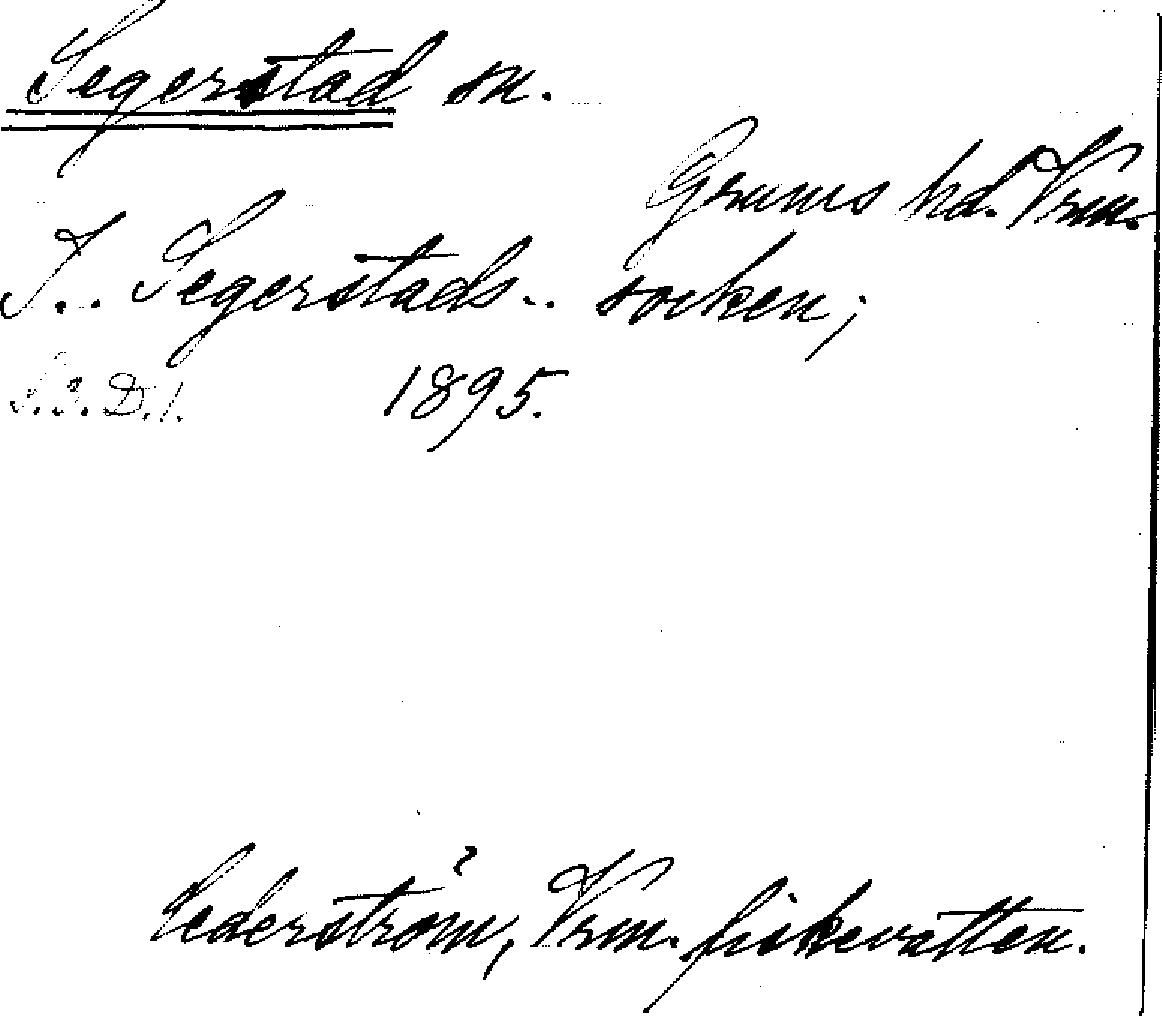 Segerstad sn.
Grums hd. Vrm.
I.. Segerstads.. socken;
S.3.D.1. 1895.
Cederström, Vrm. fiskevatten.